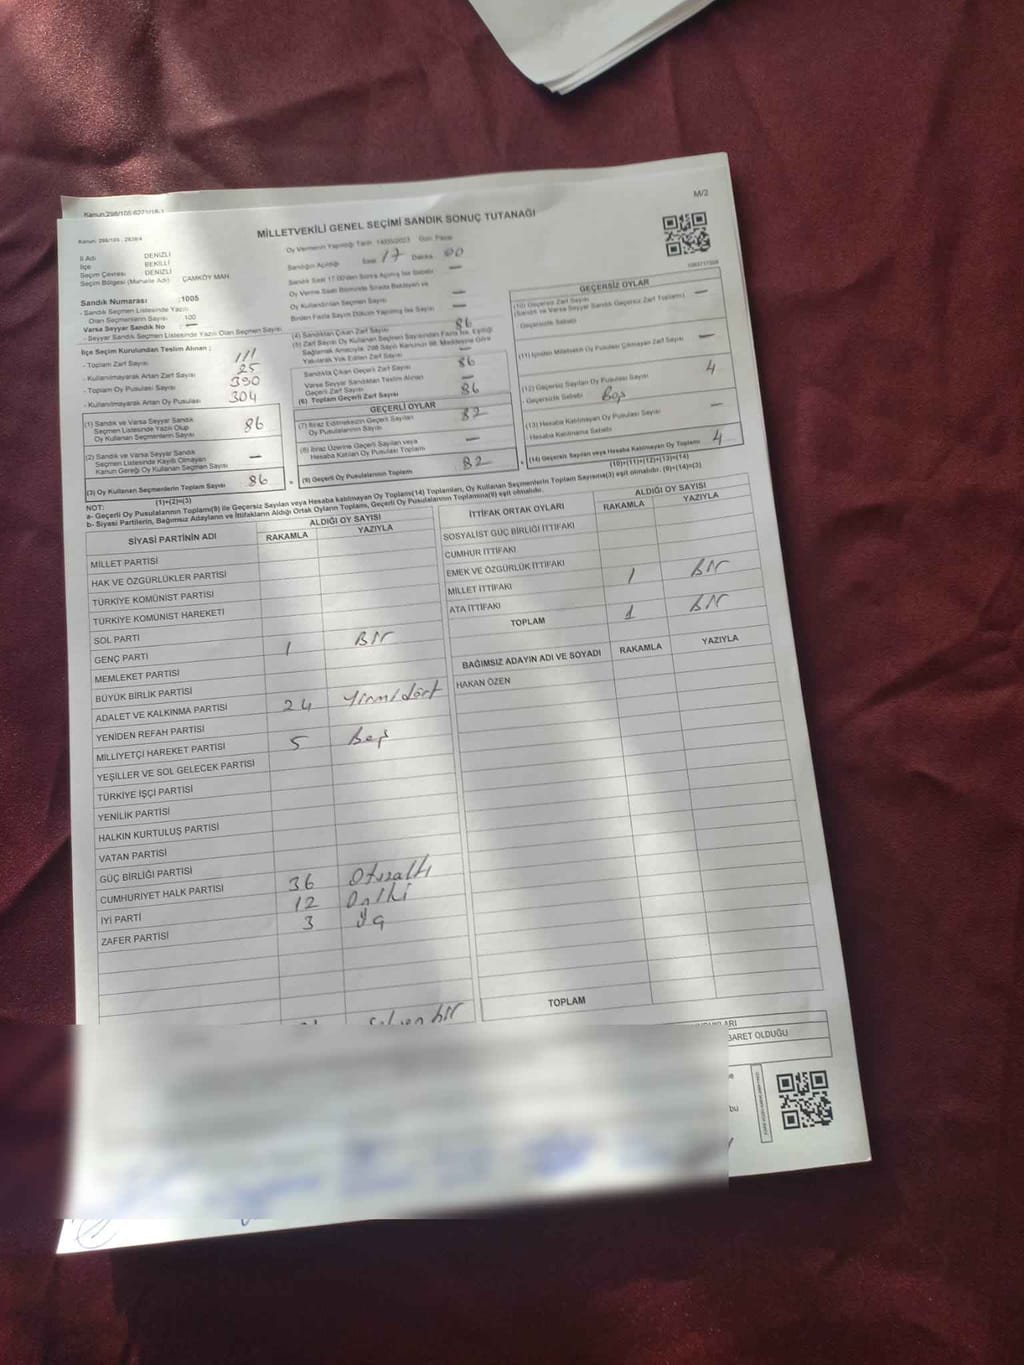 Kanun:298/105-6271/16-1
M/2
MİLLETVEKİLİ GENEL SEÇİMİ SANDIK SONUÇ TUTANAĞI
İl Adı DENİZLİ
İlçe BEKİLLİ
Seçim Çevresi : DENİZLİ
Seçim Bölgesi (Mahalle Adı) : ÇAMKÖY MAH.
Sandık Numarası :1005
- Sandık Seçmen Listesinde Yazılı
Olan Seçmenlerin Sayısı 100
Varsa Seyyar Sandık No —
- Seyyar Sandık Seçmen Listesinde Yazılı Olan Seçmen Sayısı
Oy Vermenin Yapıldığı Tarih 14/05/2023 Gün Pazar
Sandığın Açıldığı Saat 17 Dakika 00
Sandık Saat 17.00'den Sonra Açılmış İse Sebebi —
Oy Verme Saati Bitiminde Sırada Bekleyen ve
Oy Kullandırılan Seçmen Sayısı —
Birden Fazla Sayım Döküm Yapılmış İse Sayısı —
İlçe Seçim Kurulundan Teslim Alınan :
- Toplam Zarf Sayısı 111
- Kullanılmayarak Artan Zarf Sayısı 25
- Toplam Oy Pusulası Sayısı 390
- Kullanılmayarak Artan Oy Pusulası 304
(1) Sandık ve Varsa Seyyar Sandık
Seçmen Listesinde Yazılı Olup
Oy Kullanan Seçmenlerin Sayısı 86
(2) Sandık ve Varsa Seyyar Sandık
Seçmen Listesinde Kayıtlı Olmayan
Kanun Gereği Oy Kullanan Seçmen Sayısı —
(3) Oy Kullanan Seçmenlerin Toplam Sayısı 86
(1)+(2)=(3)
(4) Sandıktan Çıkan Zarf Sayısı 86
(5) Zarf Sayısı Oy Kullanan Seçmen Sayısından Fazla İse, Eşitliği
Sağlamak Amacıyla, 298 Sayılı Kanunun 98. Maddesine Göre
Yakılarak Yok Edilen Zarf Sayısı —
Sandıkta Çıkan Geçerli Zarf Sayısı 86
Varsa Seyyar Sandıktan Teslim Alınan
Geçerli Zarf Sayısı —
(6) Toplam Geçerli Zarf Sayısı 86
GEÇERLİ OYLAR
(7) İtiraz Edilmeksizin Geçerli Sayılan
Oy Pusulalarının Sayısı 82
(8) İtiraz Üzerine Geçerli Sayılan veya
Hesaba Katılan Oy Pusulalarının Toplamı —
(9) Geçerli Oy Pusulalarının Toplamı 82
GEÇERSİZ OYLAR
(10) Geçersiz Zarf Sayısı
(Sandık ve Varsa Seyyar Sandık Geçersiz Zarf Toplamı) —
Geçersizlik Sebebi
(11) İçinden Milletvekili Oy Pusulası Çıkmayan Zarf Sayısı —
(12) Geçersiz Sayılan Oy Pusulası Sayısı 4
- Geçersizlik Sebebi Boş
(13) Hesaba Katılmayan Oy Pusulası Sayısı —
- Hesaba Katılmama Sebebi
(14) Geçersiz Sayılan veya Hesaba Katılmayan Oy Toplamı 4
(10)+(11)+(12)+(13)=(14)
NOT:
a- Geçerli Oy Pusulalarının Toplamı(9) ile Geçersiz Sayılan veya Hesaba katılmayan Oy Toplamı(14) Toplamları, Oy Kullanan Seçmenlerin Toplam Sayısına(3) eşit olmalıdır. (9)+(14)=(3)
b- Siyasi Partilerin, Bağımsız Adayların ve İttifakların Aldığı Ortak Oyların Toplamı, Geçerli Oy Pusulalarının Toplamına(9) eşit olmalıdır.
SİYASİ PARTİNİN ADI ALDIĞI OY SAYISI
RAKAMLA YAZIYLA
MİLLET PARTİSİ
HAK VE ÖZGÜRLÜKLER PARTİSİ
TÜRKİYE KOMÜNİST PARTİSİ
TÜRKİYE KOMÜNİST HAREKETİ
SOL PARTİ
GENÇ PARTİ 1 BİR
MEMLEKET PARTİSİ
BÜYÜK BİRLİK PARTİSİ
ADALET VE KALKINMA PARTİSİ 24 Yirmidört
YENİDEN REFAH PARTİSİ
MİLLİYETÇİ HAREKET PARTİSİ 5 Beş
YEŞİLLER VE SOL GELECEK PARTİSİ
TÜRKİYE İŞÇİ PARTİSİ
YENİLİK PARTİSİ
HALKIN KURTULUŞ PARTİSİ
VATAN PARTİSİ
GÜÇ BİRLİĞİ PARTİSİ
CUMHURİYET HALK PARTİSİ 36 Otuzaltı
İYİ PARTİ 12 Oniki
ZAFER PARTİSİ 3 Üç
Seksen bir
İTTİFAK ORTAK OYLARI ALDIĞI OY SAYISI
RAKAMLA YAZIYLA
SOSYALİST GÜÇ BİRLİĞİ İTTİFAKI
CUMHUR İTTİFAKI
EMEK VE ÖZGÜRLÜK İTTİFAKI
MİLLET İTTİFAKI 1 BİR
ATA İTTİFAKI
TOPLAM 1 BİR
BAĞIMSIZ ADAYIN ADI VE SOYADI RAKAMLA YAZIYLA
HAKAN ÖZEN
TOPLAM
BARET OLDUĞU